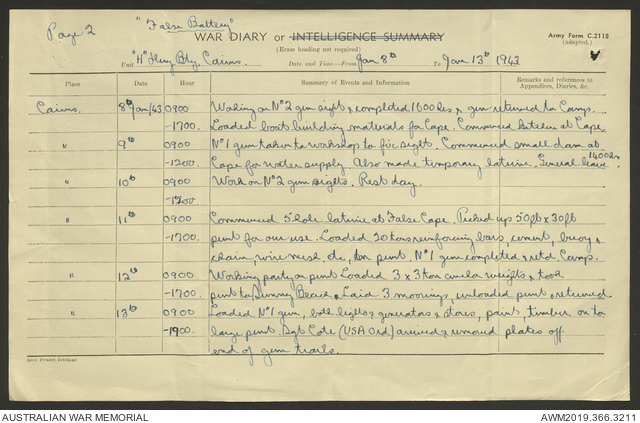 Page 2
"False Battery"
WAR DIARY or INTELLIGENCE SUMMARY
(Erase heading not required)
Army Form C.2118
(adapted.)
Unit "H" Hvy Bty, Cairns. Date and Time—From Jan 8th To Jan 13th 1943
Place Date Hour Summary of Events and Information Remarks and references to Appendices, Diaries, &c.
Cairns. 8th Jan/43 0900 Working on No 2 gun sight & completed 1600 hrs & gun returned to Camp.
-1700. Loaded boat building materials for Cape. Commenced kitchen at Cape.
" 9th 0900 No 1 gun taken to workshop to fix sight. Commenced small dam at
-1200 Cape for water supply. Also made temporary latrine. General leave 1400 hrs
" 10th 0900 Work on No 2 gun sights. Rest day.
-1200
" 11th 0900 Commenced 5 hole latrine at False Cape. Picked up 50ft x 30ft
-1700 punt for our use. Loaded 20 tons reinforcing bars, cement, buoy &
chain, wire mesh, etc, on punt. No 1 gun completed & retd. Camp.
" 12th 0900 Working party on punt Loaded 3 x 3 ton anchor weights & took
-1700 punt to Sunny Beach & Laid 3 moorings, unloaded punt & returned.
" 13th 0900 Loaded No 1 gun, both lights & generators & stores, paint, timber on to
-1900. large punt. Sgt Cote (USA Ord) arrived & removed plates off
end of gun trails.
AUSTRALIAN WAR MEMORIAL
AWM2019.366.3211